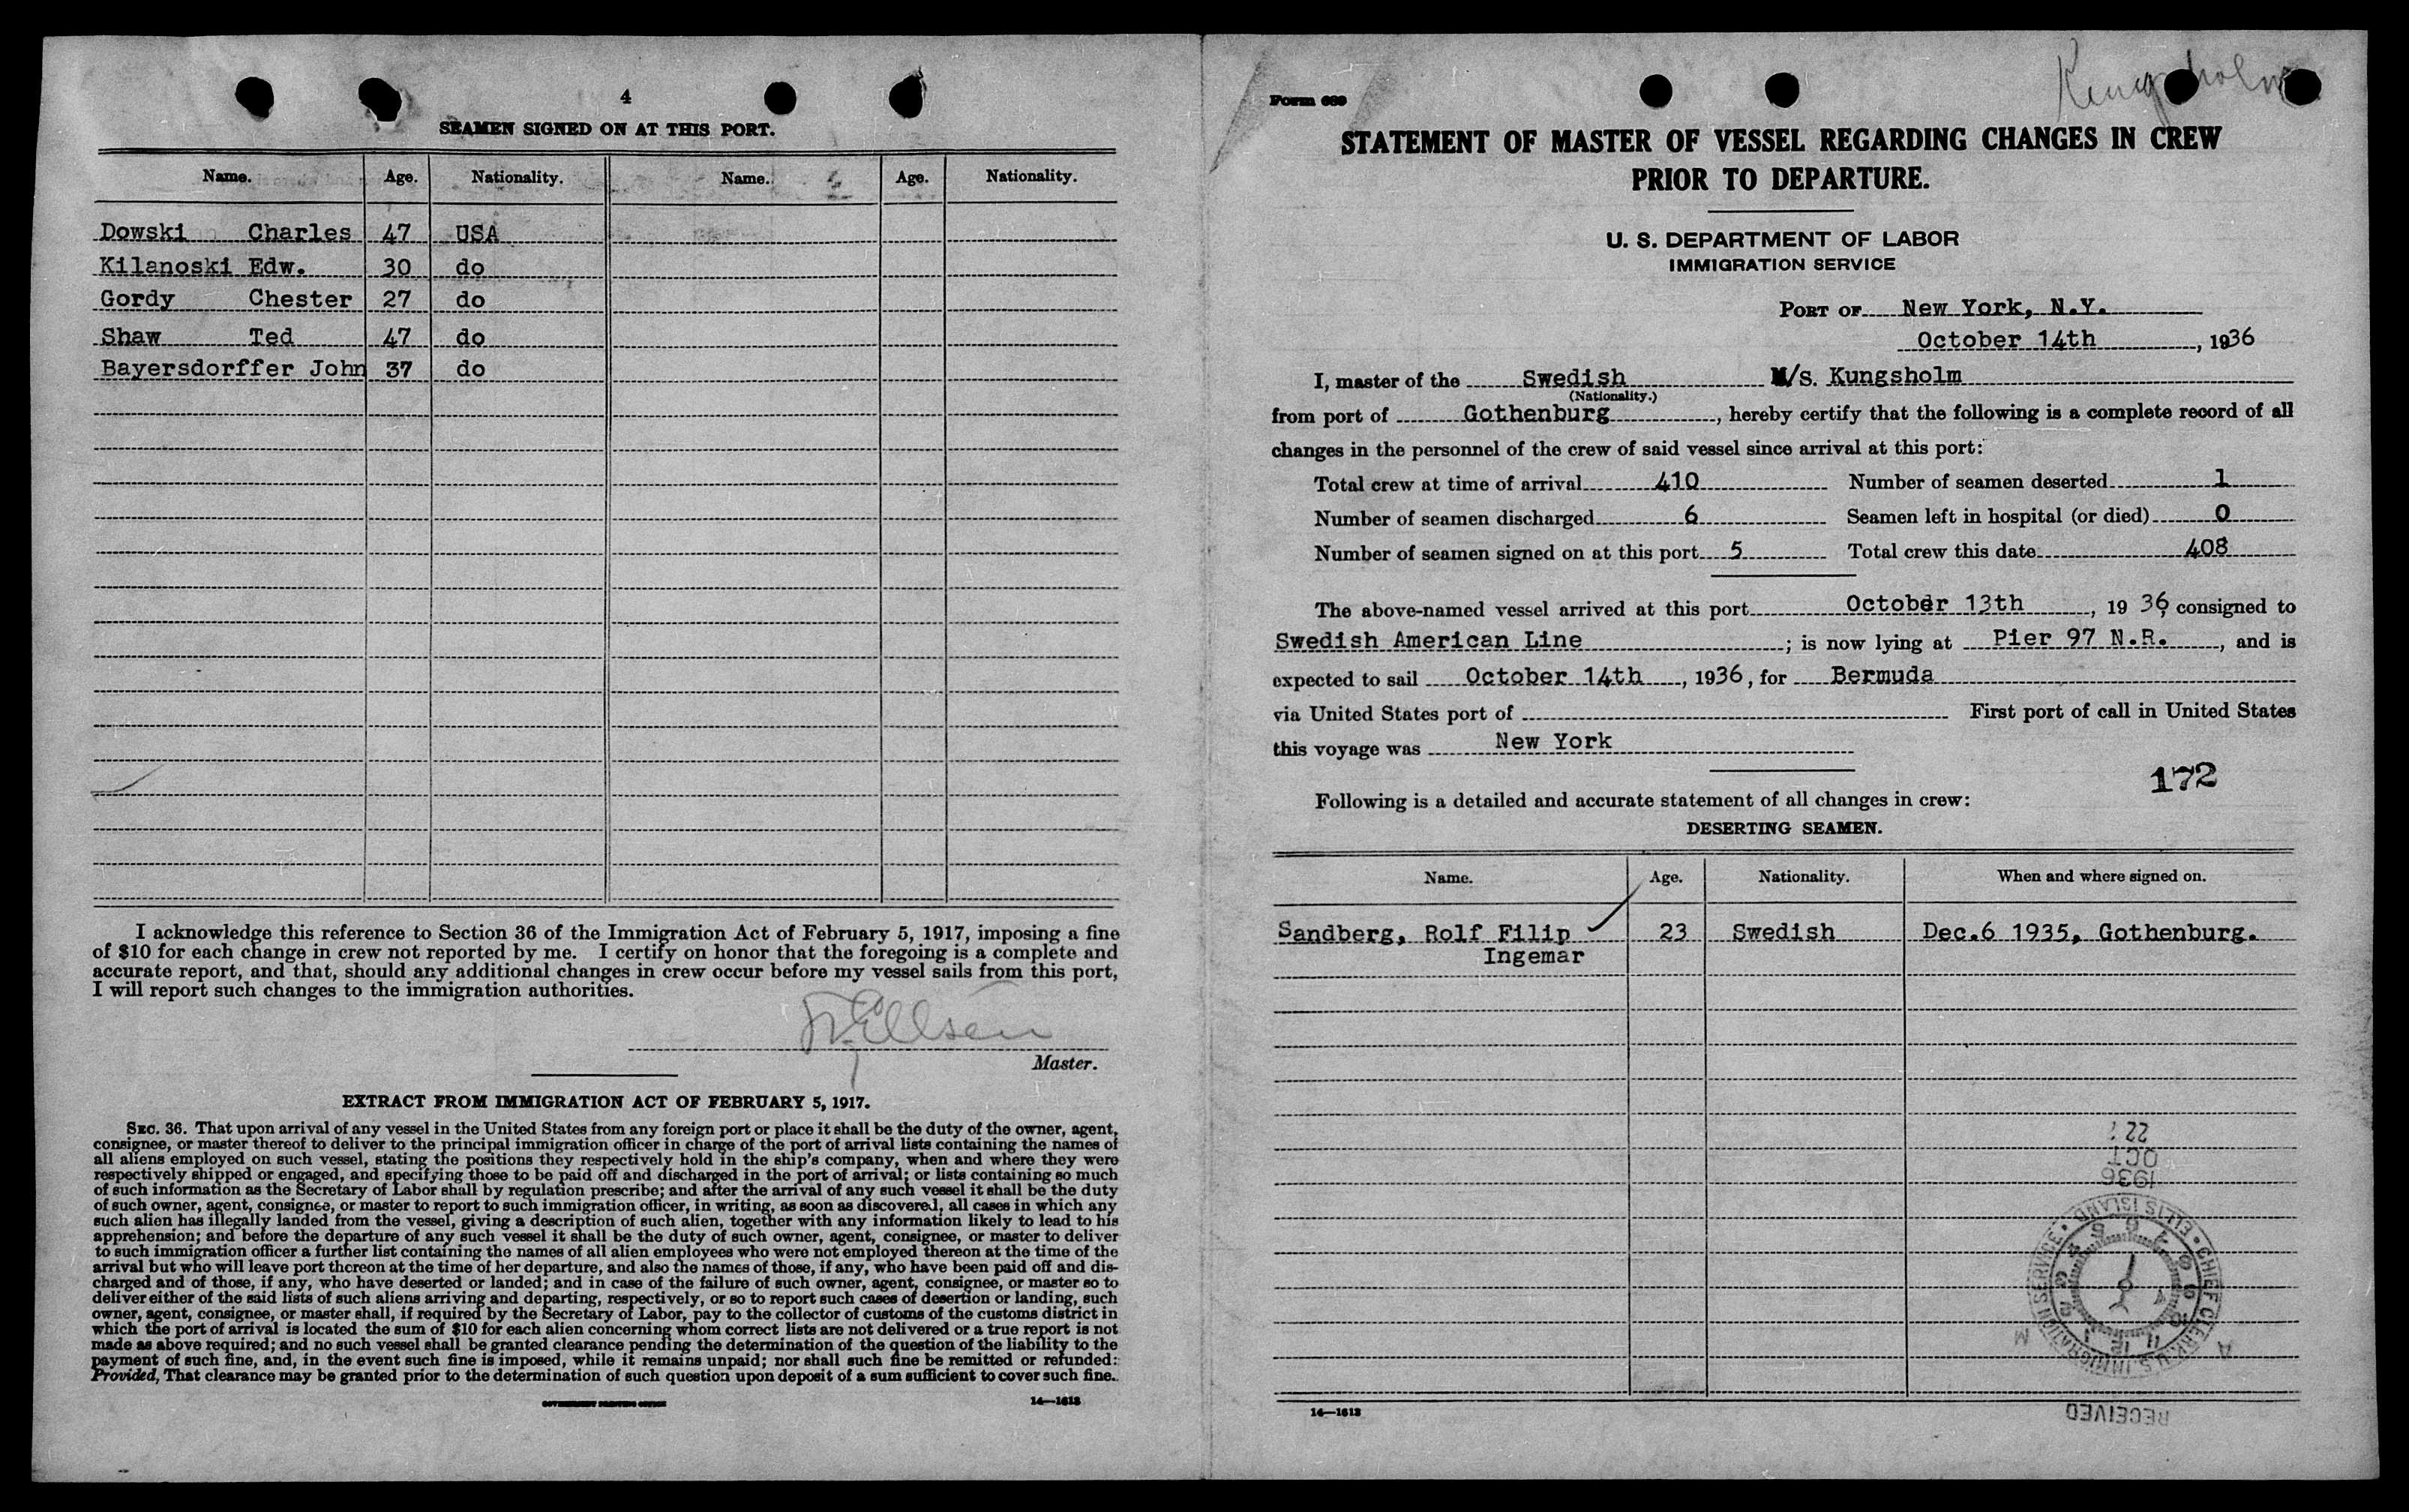 4
SEAMEN SIGNED ON AT THIS PORT.
Name. Age. Nationality. Name. Age. Nationality.
Dowski Charles 47 USA
Kilanoski Edw. 30 do
Gordy Chester 27 do
Shaw Ted 47 do
Bayersdorffer John 37 do
I acknowledge this reference to Section 36 of the Immigration Act of February 5, 1917, imposing a fine
of $10 for each change in crew not reported by me. I certify on honor that the foregoing is a complete and
accurate report, and that, should any additional changes in crew occur before my vessel sails from this port,
I will report such changes to the immigration authorities.
Master.
EXTRACT FROM IMMIGRATION ACT OF FEBRUARY 5, 1917.
SEC. 36. That upon arrival of any vessel in the United States from any foreign port or place it shall be the duty of the owner, agent,
consignee, or master thereof to deliver to the principal immigration officer in charge of the port of arrival lists containing the names of
all aliens employed on such vessel, stating the positions they respectively hold in the ship's company, when and where they were
respectively shipped or engaged, and specifying those to be paid off and discharged in the port of arrival; or lists containing so much
of such information as the Secretary of Labor shall by regulation prescribe; and after the arrival of any such vessel it shall be the duty
of such owner, agent, consignee, or master to report to such immigration officer, in writing, as soon as discovered, all cases in which any
such alien has illegally landed from the vessel, giving a description of such alien, together with any information likely to lead to his
apprehension; and before the departure of any such vessel it shall be the duty of such owner, agent, consignee, or master to deliver
to such immigration officer a further list containing the names of all alien employees who were not employed thereon at the time of the
arrival but who will leave port thereon at the time of her departure, and also the names of those, if any, who have been paid off and dis-
charged and of those, if any, who have deserted or landed; and in case of the failure of such owner, agent, consignee, or master so to
deliver either of the said lists of such aliens arriving and departing, respectively, or so to report such cases of desertion or landing, such
owner, agent, consignee, or master shall, if required by the Secretary of Labor, pay to the collector of customs of the customs district in
which the port of arrival is located the sum of $10 for each alien concerning whom correct lists are not delivered or a true report is not
made as above required; and no such vessel shall be granted clearance pending the determination of the question of the liability to the
payment of such fine, and, in the event such fine is imposed, while it remains unpaid; nor shall such fine be remitted or refunded:
Provided, That clearance may be granted prior to the determination of such question upon deposit of a sum sufficient to cover such fine.
GOVERNMENT PRINTING OFFICE 14—1613
Kungsholm
Form 689
STATEMENT OF MASTER OF VESSEL REGARDING CHANGES IN CREW
PRIOR TO DEPARTURE.
U. S. DEPARTMENT OF LABOR
IMMIGRATION SERVICE
PORT OF New York, N.Y.
October 14th, 1936
I, master of the Swedish M/S. Kungsholm
(Nationality.)
from port of Gothenburg, hereby certify that the following is a complete record of all
changes in the personnel of the crew of said vessel since arrival at this port:
Total crew at time of arrival 410 Number of seamen deserted 1
Number of seamen discharged 6 Seamen left in hospital (or died) 0
Number of seamen signed on at this port 5 Total crew this date 408
The above-named vessel arrived at this port October 13th, 1936, consigned to
Swedish American Line; is now lying at Pier 97 N.R., and is
expected to sail October 14th, 1936, for Bermuda
via United States port of First port of call in United States
this voyage was New York
172
Following is a detailed and accurate statement of all changes in crew:
DESERTING SEAMEN.
Name. Age. Nationality. When and where signed on.
Sandberg, Rolf Filip 23 Swedish Dec.6 1935, Gothenburg.
Ingemar
22
OCT
1936
CHIEF CLERK U.S. IMMIGRATION SERVICE • ELLIS ISLAND
A M
RECEIVED
14—1613